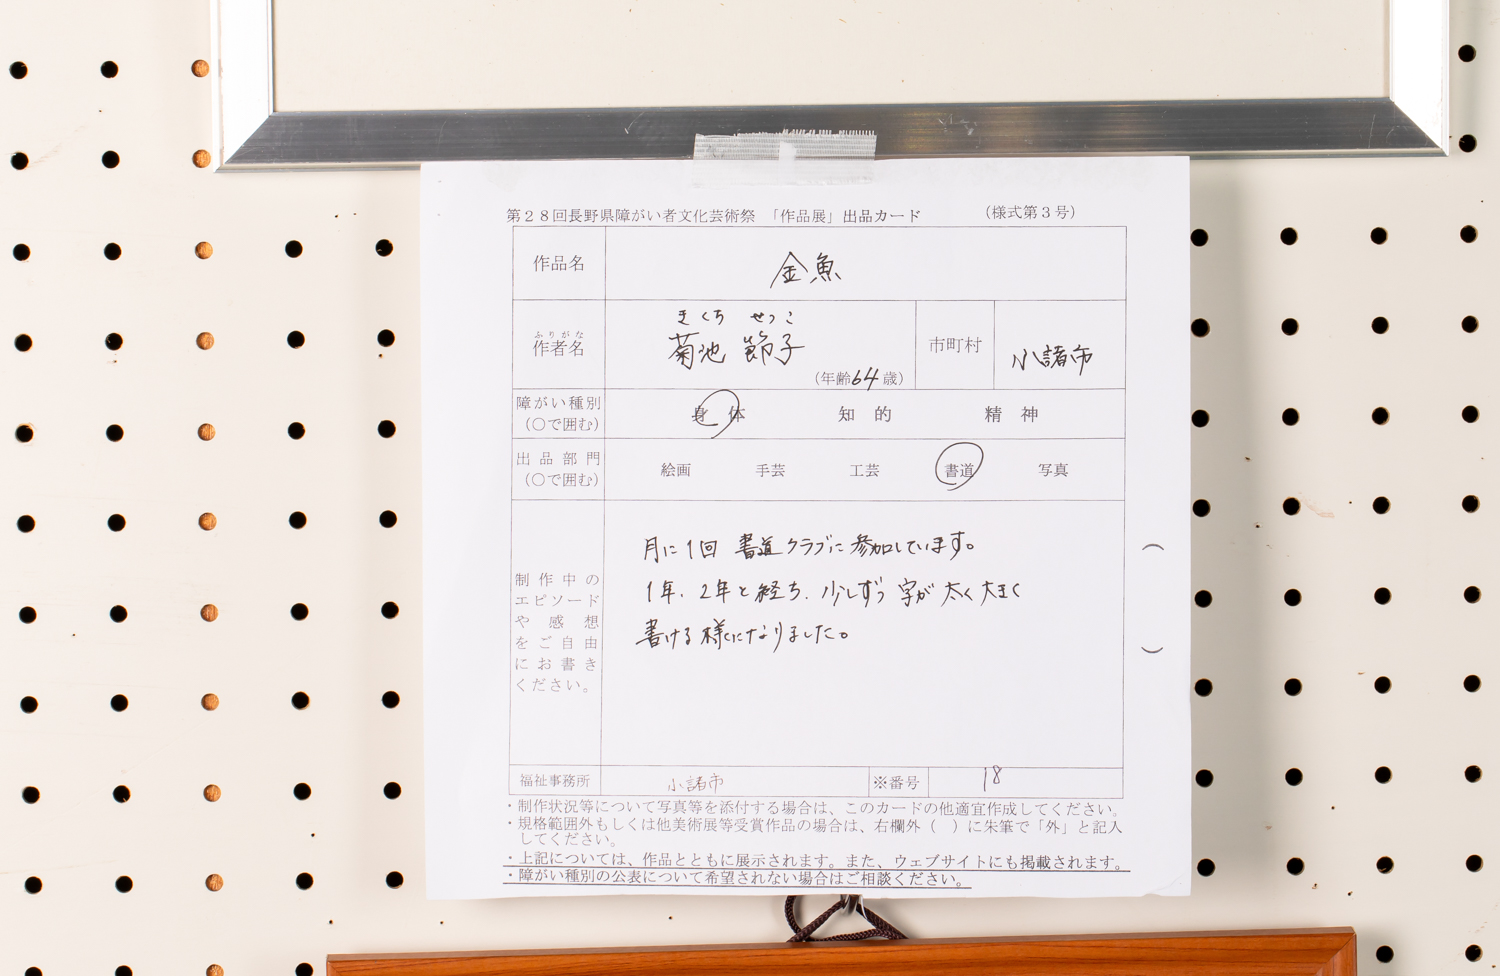 第28回長野県障がい者文化芸術祭 「作品展」出品カード （様式第3号）
作品名 金魚
ふりがな きくち せつこ
作者名 菊池 節子 （年齢64歳） 市町村 小諸市
障がい種別 （〇で囲む） 身体 知的 精神
出品部門 （〇で囲む） 絵画 手芸 工芸 書道 写真
制作中の
エピソード
や感想
をご自由
にお書き
ください。
月に1回 書道クラブに参加しています。
1年、2年と経ち、少しずつ 字が太く大きく
書ける様になりました。
（ ）
福祉事務所 小諸市 ※番号 18
・制作状況等について写真等を添付する場合は、このカードの他適宜作成してください。
・規格範囲外もしくは他美術展等受賞作品の場合は、右欄外（ ）に朱筆で「外」と記入
してください。
・上記については、作品とともに展示されます。また、ウェブサイトにも掲載されます。
・障がい種別の公表について希望されない場合はご相談ください。